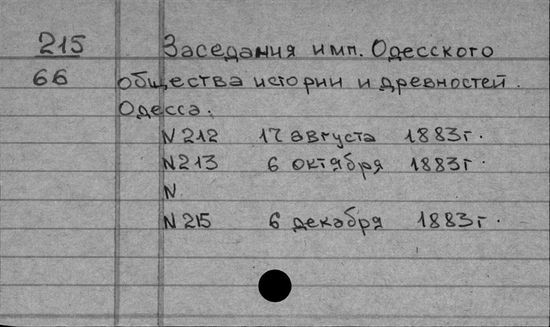 215 Заседания имп. Одесского
66 общества истории и древностей.
Одесса.
N 212 17 августа 1883г.
N 213 6 октября 1883г.
N
N 215 6 декабря 1883г.